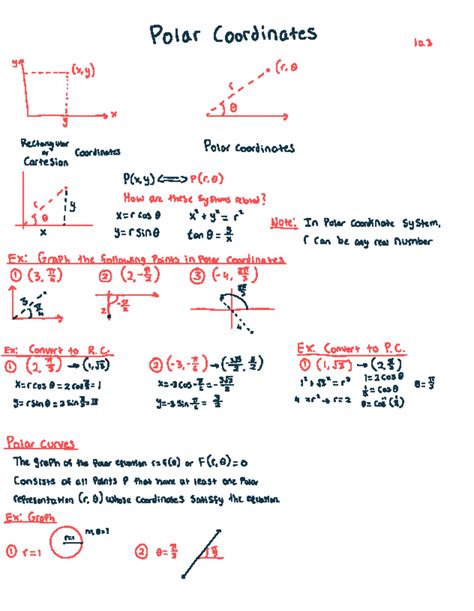 Polar Coordinates
10.3
y (x,y)
x
y
r θ (r,θ
Rectangular or Cartesian Coordinates
Polar Coordinates
P(x,y) <=> P(r,θ)
How are these systems related?
x=r cosθ x²+y²=r²
y=r sinθ tanθ=y/x
r θ y
x
Note: In Polar Coordinate System,
r can be any real number
Ex: Graph the following Points in Polar Coordinates
① (3, π/4) ② (2, -π/2) ③ (-4,
Ex: Convert to R.C.
① (2, π/3) → (1,√3)
x=r cosθ = 2cos π/3 = 1
y=r sinθ = 2 sin π/3 = √3
② (-3, -π/6) →
Ex: Convert to P.C.
① (1,√3) → (2, π/3)
1²+√3² = r² 1=2cosθ
½=cosθ θ=π/3
4=r² → r=2 θ=cos⁻¹(½)
Polar Curves
The graph of the Polar equation r=f(θ) or F(r,θ)=0
Consists of all Points P that have at least one Polar
representation (r,θ) whose coordinates satisfy the equation.
Ex: Graph
① r=1 r=1 ② θ=π/3